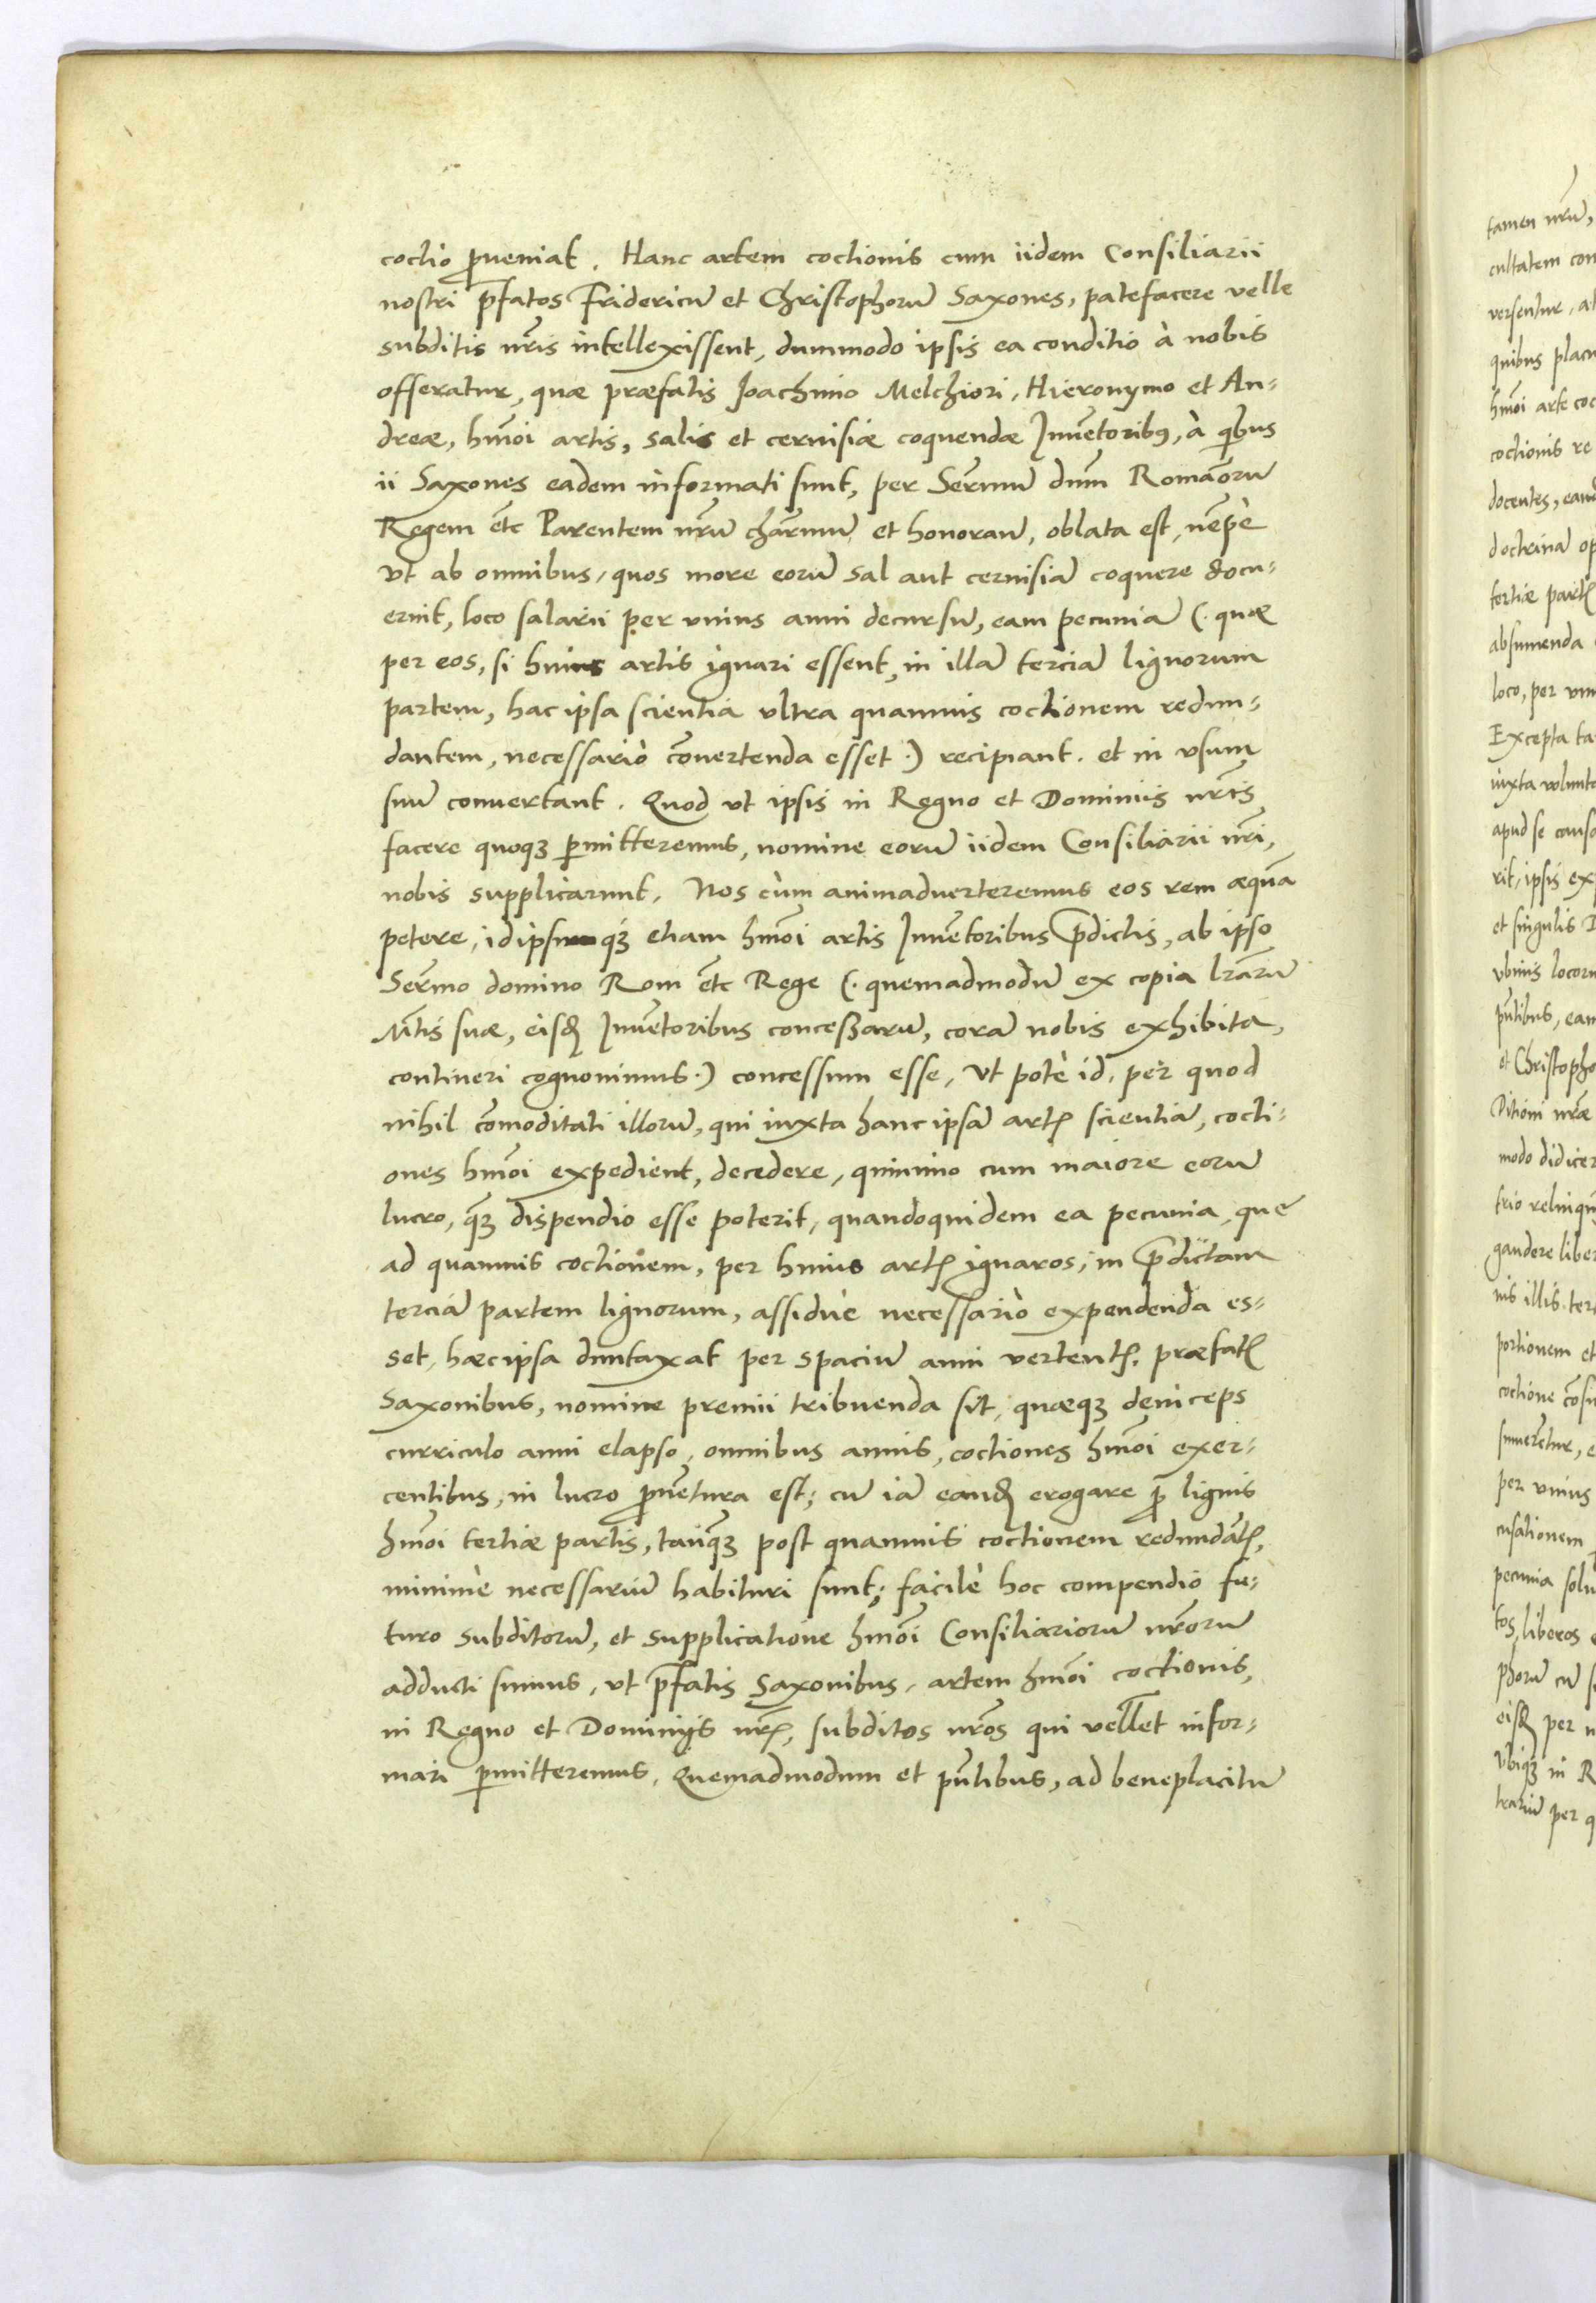 coctio p̄ueniat. Hanc artem coctionis cum iidem Consiliarii
nostri p̄fatos Fridericū et Christophorū Saxones, patefacere velle
subditis nr̄is intellexissent, dummodo ipsis ea conditio à nobis
offeratur, quæ præfatis Joachimo Melchiori, Hieronymo et An=
dreæ, hm̄oi artis, salis et ceruisiæ coquendæ Inuētoribꝰ, à qibus
ii Saxones eadem informati sunt, per Serm̄um dnm̄ Romāorū
Regem etc̄ Parentem nr̄um chār̄mū et honoranꝰ, oblata est, nēpè
vt ab omnibus, quos more eorū sal aut ceruisiā coquere docu=
erint, loco salarii per vnius anni decursū, eam pecuniā (. quæ
per eos, si huius artis ignari essent, in illā terciā lignorum
partem, hac ipsa scientia vltra quamuis coctionem redun=
dantem, necessariò cōuertenda esset .) recipiant. et in vsum
suū conuertant. Quod vt ipsis in Regno et Dominiis nr̄is
facere quoqꝫ p̄mitteremus, nomine eorū iidem Consiliarii nr̄i,
nobis supplicarunt. Nos cùm animaduerteremus eos rem æquā
petere, idipsumqꝫ etiam hm̄oi artis Inuētoribus p̄dictis, ab ipso
Serm̄o domino Rom etc̄ Rege (. quemadmodū ex copia lr̄arū
Mtis̄ suæ, eisdꝫ Inuētoribus concessarū, corā nobis exhibita,
contineri cognouimus .) concessum esse, vt potè id, per quod
nihil cōmoditati illorū, qui iuxta hanc ipsā artꝭ scientiā, cocti=
ones hm̄oi expedient, decedere, quinimo cum maiore eorū
lucro, qꝫ dispendio esse poterit, quandoquidem ea pecunia, quę
ad quamuis coctionem, per huius artꝭ ignaros, in p̄dictam
terciā partem lignorum, assiduè necessariò expendenda es=
set, hæc ipsa duntaxat per spaciū anni vertentꝭ, præfatꝭ
Saxonibus, nomine premii tribuenda sit, quæqꝫ deinceps
curriculo anni elapso, omnibus annis, coctiones hm̄oi exer=
centibus, in lucro p̄uētura est, cū iā eandꝫ erogare p̄ lignis
hm̄oi tertiæ partis, tanq̄ꝫ post quamuis coctionem redundātꝭ,
minimè necessariū habituri sunt; facilè hoc compendio fu=
turo subditorū, et supplicatione hm̄oi Consiliariorū nr̄orū
adducti sumus, vt p̄fatis Saxonibus, artem hm̄oi coctionis,
in Regno et Dominijs nr̄ꝭ, subditos nr̄os qui vellēt infor=
mari p̄mitteremus, Quemadmodum et pn̄tibus, ad beneplacitū